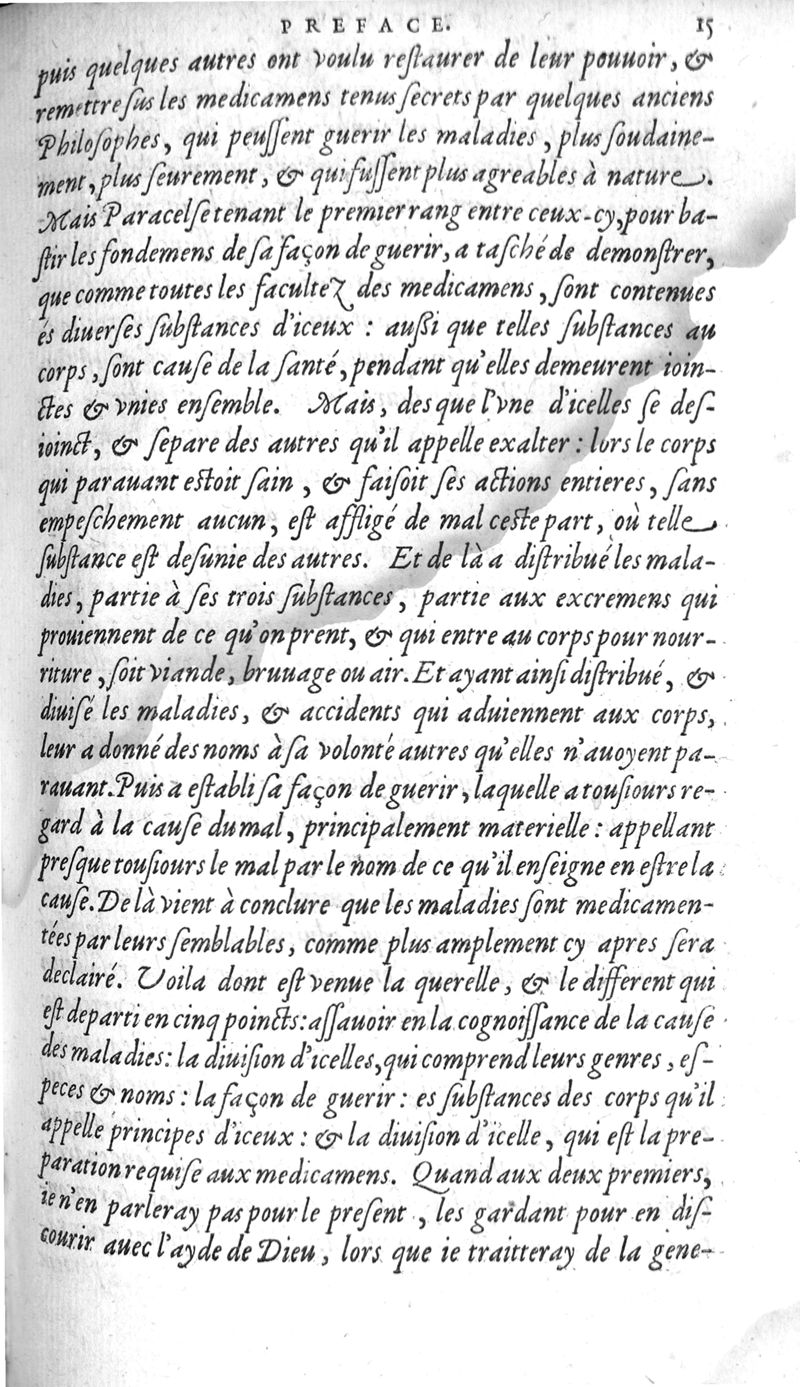 PREFACE. 15
puis quelques autres ont voulu reſtaurer de leur pouuoir, &
remettre ſus les medicamens tenus ſecrets par quelques anciens
Philoſophes, qui peuſſent guerir les maladies, plus ſoudaine-
ment, plus ſeurement, & qui fuſſent plus agreables à nature.
Mais Paracelſe tenant le premier rang entre ceux-cy, pour ba-
ſtir les fondemens de ſa façon de guerir, a taſché de demonſtrer,
que comme toutes les facultez des medicamens, ſont contenues
és diuerſes ſubſtances d'iceux : auſſi que telles ſubſtances au
corps, ſont cauſe de la ſanté, pendant qu'elles demeurent ioin-
ctes & vnies enſemble. Mais, des que l'vne d'icelles ſe deſ-
ioinct, & ſepare des autres qu'il appelle exalter : lors le corps
qui parauant eſtoit ſain, & faiſoit ſes actions entieres, ſans
empeſchement aucun, eſt affligé de mal ceſte part, où telle
ſubſtance eſt deſunie des autres. Et de là a diſtribué les mala-
dies, partie à ſes trois ſubſtances, partie aux excremens qui
prouiennent de ce qu'on prent, & qui entre au corps pour nour-
riture, ſoit viande, bruuage ou air. Et ayant ainſi diſtribué, &
diuiſé les maladies, & accidents qui aduiennent aux corps,
leur a donné des noms à ſa volonté autres qu'elles n'auoyent pa-
rauant. Puis a eſtabli ſa façon de guerir, laquelle a touſiours re-
gard à la cauſe du mal, principalement materielle : appellant
preſque touſiours le mal par le nom de ce qu'il enſeigne en eſtre la
cauſe. De là vient à conclure que les maladies ſont medicamen-
tées par leurs ſemblables, comme plus amplement cy apres ſera
declairé. Voila dont eſt venue la querelle, & le different qui
eſt departi en cinq poincts: aſſauoir en la cognoiſſance de la cauſe
des maladies : la diuiſion d'icelles, qui comprend leurs genres, eſ-
peces & noms : la façon de guerir : es ſubſtances des corps qu'il
appelle principes d'iceux : & la diuiſion d'icelle, qui eſt la pre-
paration requiſe aux medicamens. Quand aux deux premiers,
ie n'en parleray pas pour le preſent, les gardant pour en diſ-
courir auec l'ayde de Dieu, lors que ie traitteray de la gene-